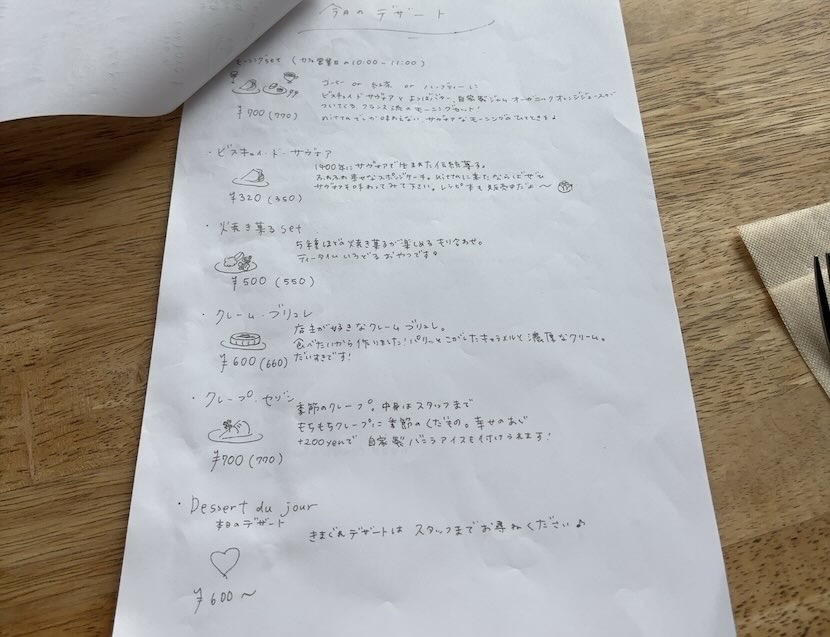 今日のデザート
モーニングset (カフェ営業日の10:00-11:00)
コーヒー or 紅茶 or ハーブティーに
ビスキュイ・ド・サヴォアとよつばバター、自家製ジャム オーガニックオレンジジュースが
ついてくる、フランス流のモーニングセット!
¥700(770)
味わえない、サヴォアなモーニングのひとときを♪
・ビスキュイ・ド・サヴォア
1400年にサヴォアで生まれた伝統菓子。
ふわふわ幸せなスポンジケーキ。に来たならばぜひ
サヴォアを味わってみて下さい。レシピ本も販売中だよ〜
¥320(350)
・焼き菓子set
5種ほどの焼き菓子が楽しめるもり合わせ。
ティータイムいろどるおやつです。
¥500(550)
・クレーム・ブリュレ
店主が好きなクレームブリュレ。
食べたいから作りました!パリッとこがしたキャラメルと濃厚なクリーム。
だいすきです!
¥600(660)
・クレープ・セゾン
季節のクレープ。中身はスタッフまで
もちもちクレープに季節のくだもの。幸せのあじ
+200yenで 自家製バニラアイスも付けられます!
¥700(770)
・Dessert du jour
本日のデザート
きまぐれデザートは スタッフまでお尋ねください♪
¥600〜